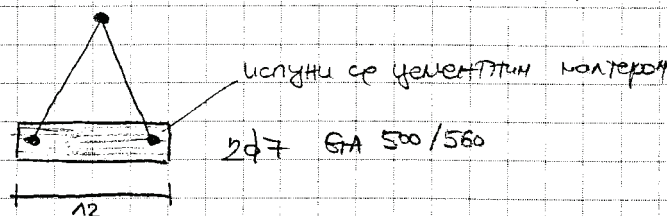 испуни се цементним малтером
2ϕ7 GA 500/560
12